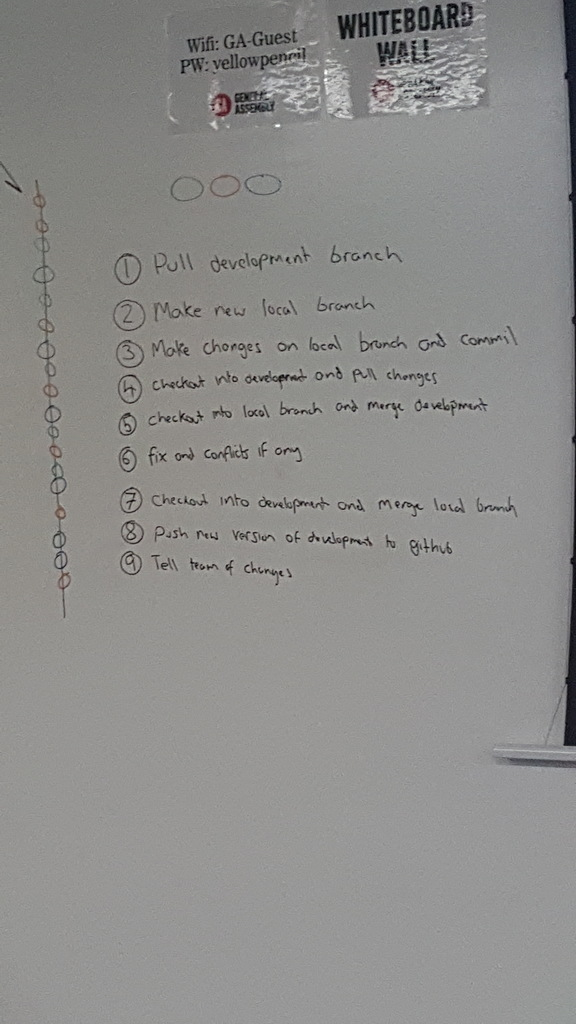 Wifi: GA-Guest
PW: yellowpencil
GENERAL
ASSEMBLY
WHITEBOARD
WALL
① Pull development branch
② Make new local branch
③ Make changes on local branch and commit
④ checkout into development and pull changes
⑤ checkout into local branch and merge development
⑥ fix and conflicts if any
⑦ Checkout into development and merge local branch
⑧ Push new version of development to github
⑨ Tell team of changes